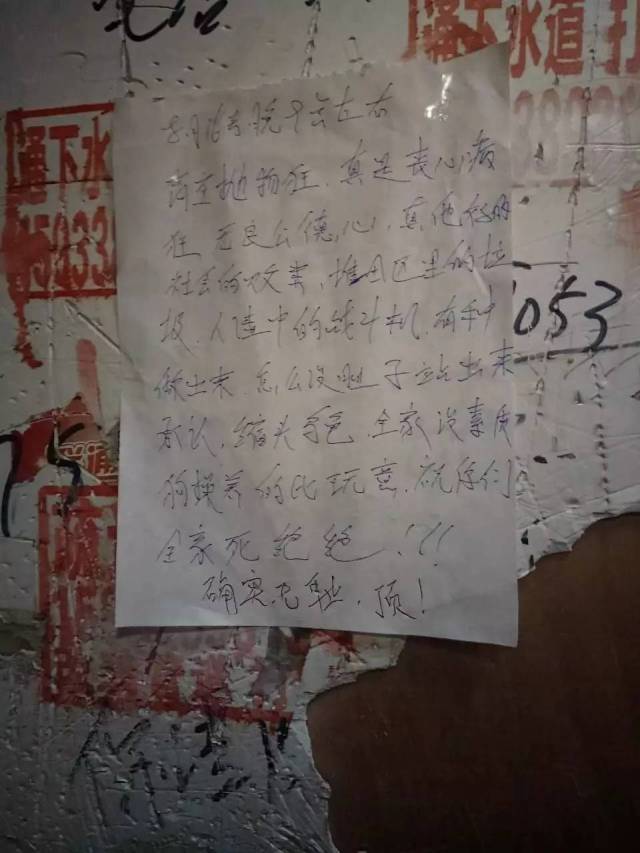 8月16号晚9点左右
高空抛物狂，真是丧心病
狂，无良公德心，真他妈的
社会的败类，堆田区里的垃
圾，人渣中的战斗机，有种
做出来，怎么没胆子站出来
承认，缩头乌龟，全家没素质
狗模养的此玩意，祝你们
全家死绝绝！！！
确实无耻，顶！
通下水道打
通下水
15933
1053
75